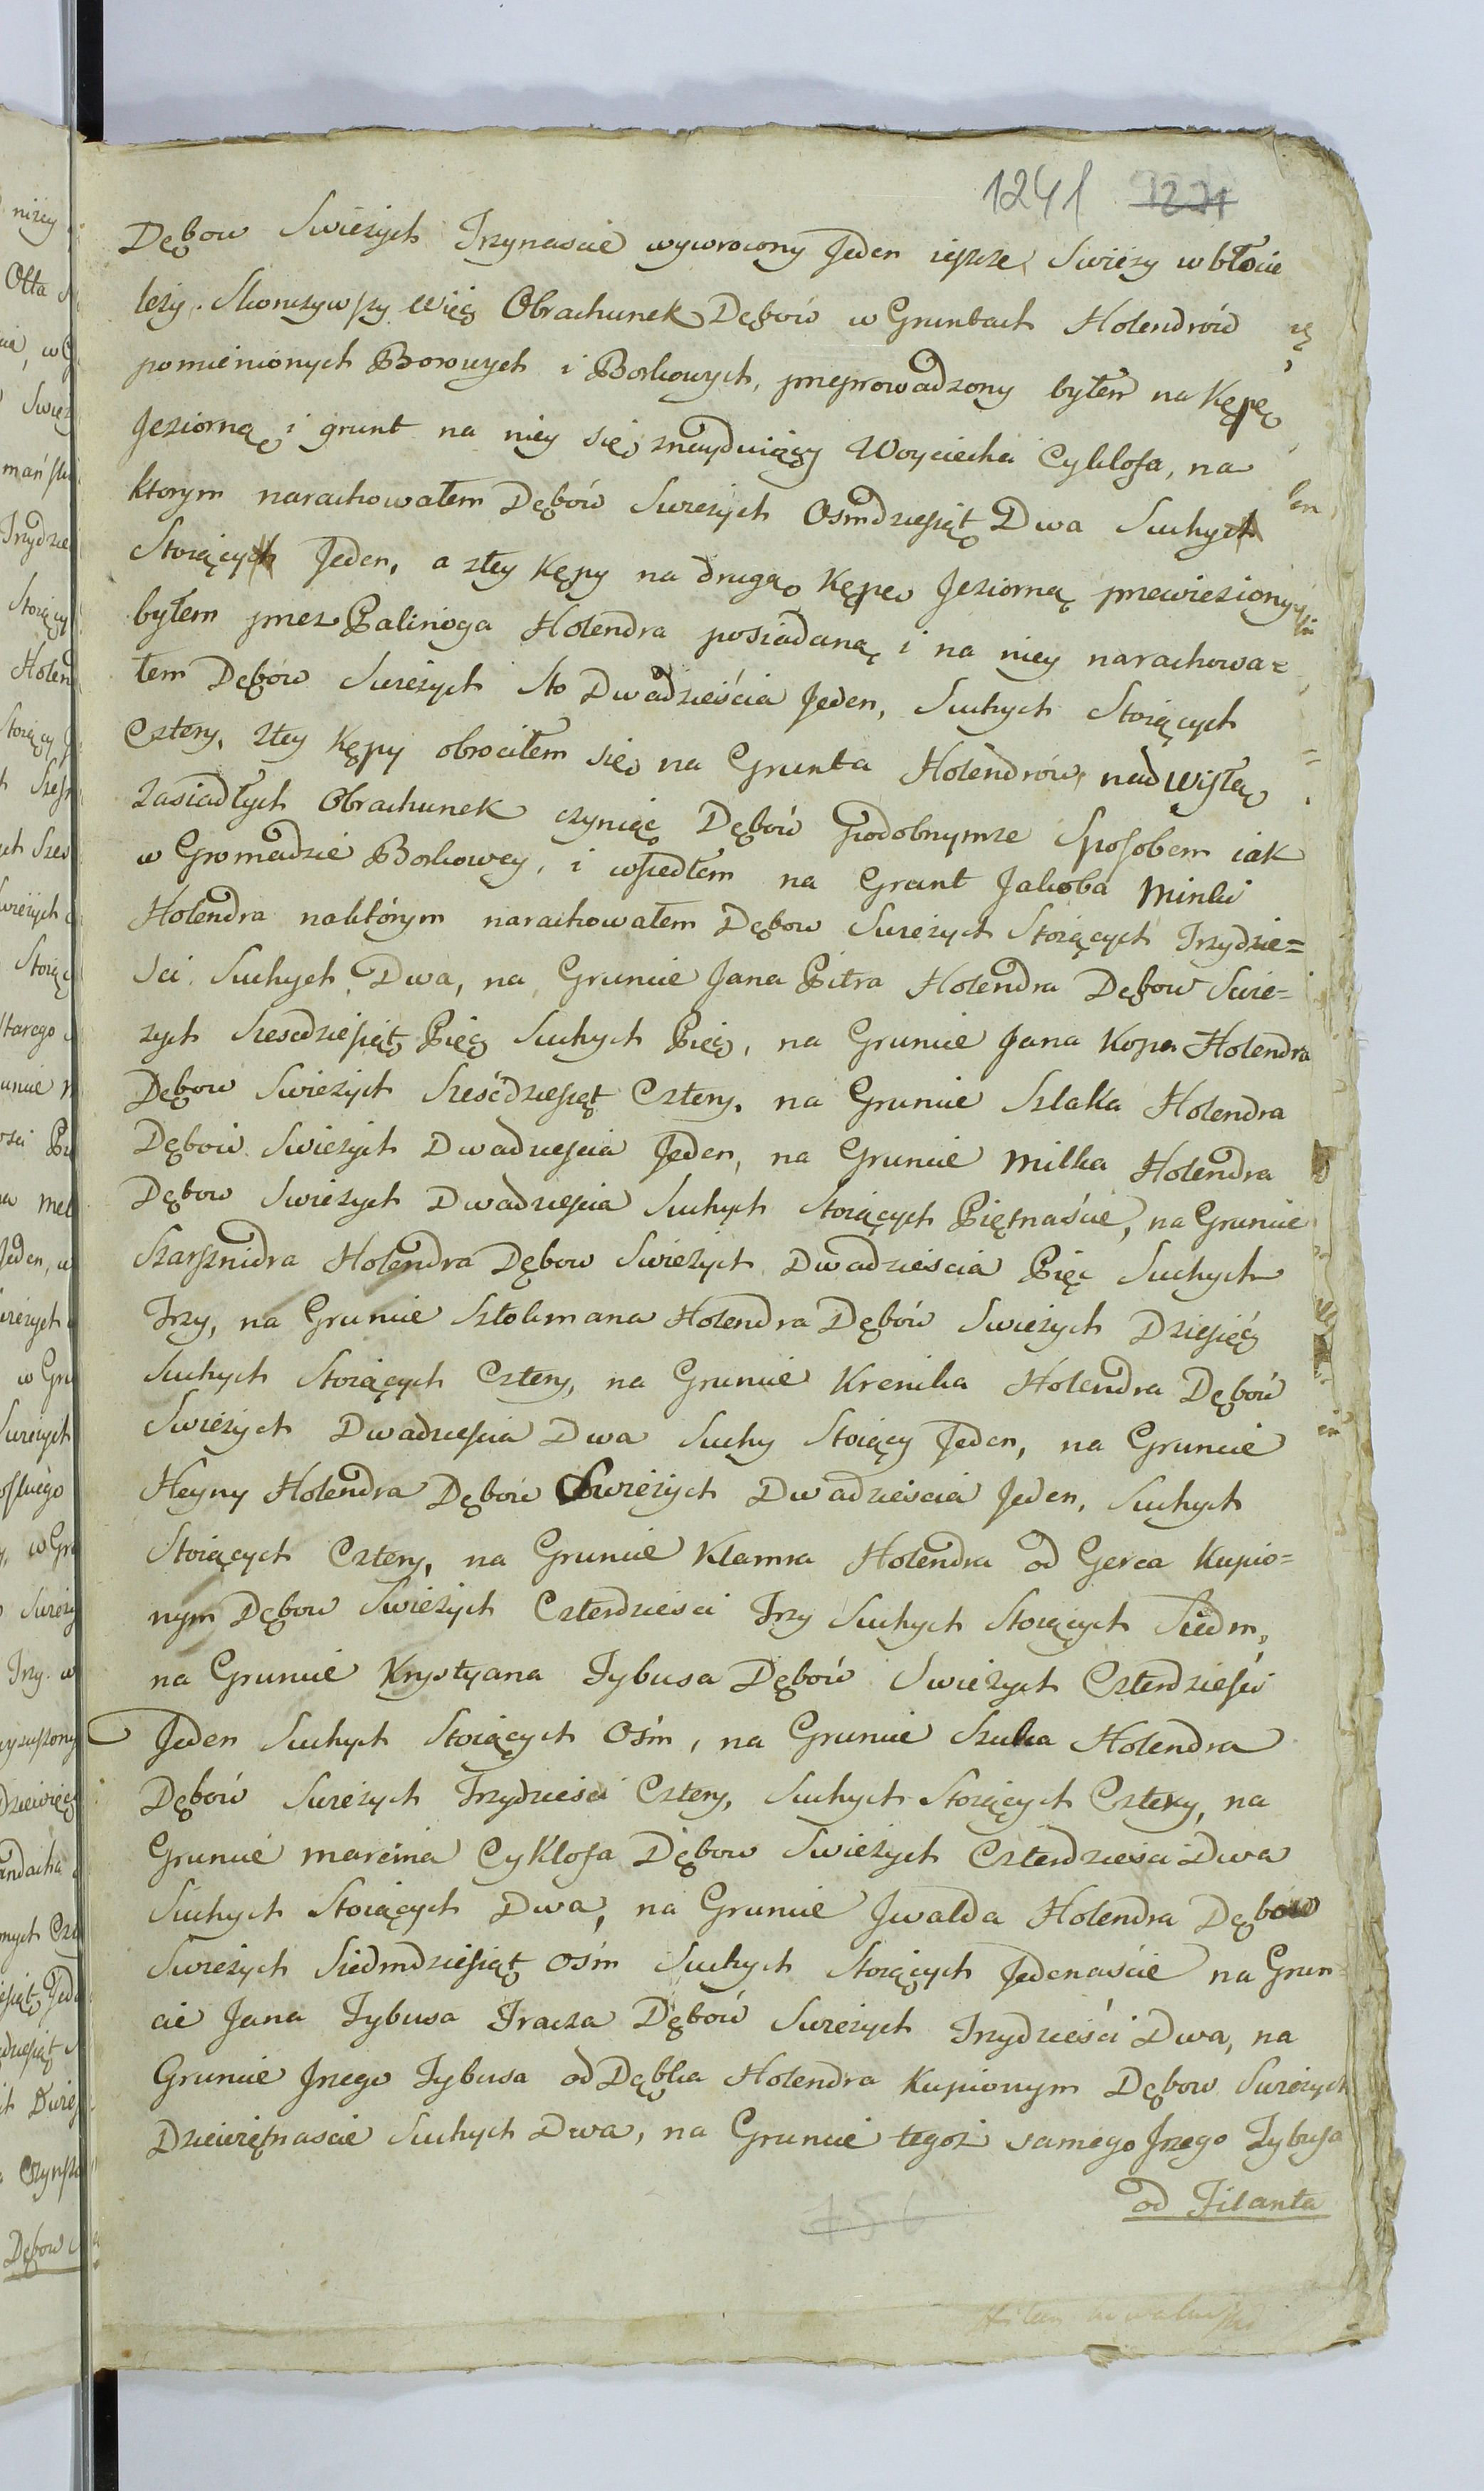 1241 1231
Dębow Swieżych Trzynascie wywrocony Jeden ieszcze Swieży w błocie
leży. Skonczywszy więc Obrachunek Dębów w Gruntach Holendrów
pomienionych Borowych i Borkowych, przeprowadzony byłem na Kępę
Jeziorną i grunt na niey się znayduiący Woyciecha Cyklofa, na
ktorym narachowałem Dębów Swieżych Osmdziesiąt Dwa Suchy
Stoiący Jeden, a ztey Kępy na drugą Kępę Jeziorną przewieziony
byłem przez Palinoga Holendra posiadaną i na niey narachowa=
łem Dębów Swieżych Sto Dwadzieścia Jeden, Suchych Stoiących
Cztery, Ztey Kępy obrociłem się na Grunta Holendrów nad Wisłą
Zasiadłych Obrachunek czyniąc Dębów podobnymże Sposobem iak
w Gromadzie Borkowey, i wszedłem na Grunt Jakoba Minki
Holendra naktórym narachowałem Dębow Swieżych Stoiących Trzydzie=
sci Suchych Dwa, na Gruncie Jana Pitra Holendra Dębow Swie=
zych Szescdziesiąt Pięc Suchych Pięc, na Gruncie Jana Kopa Holendra
Dębow Swieżych Sześćdziesiąt Cztery, na Gruncie Szlaka Holendra
Dębów Swieżych Dwadziescia Jeden, na Gruncie Milka Holendra
Dębow Swieżych Dwadziescia Suchych Stoiących Piętnaście, na Gruncie
Szarsznidra Holendra Dębow Swieżych Dwadzieścia Pięc Suchych
Trzy, na Gruncie Sztolcmana Holendra Dębów Swieżych Dziesięc
Suchych Stoiących Cztery, na Gruncie Krenika Holendra Dębów
Swieżych Dwadziescia Dwa Suchy Stoiący Jeden, na Gruncie
Heyny Holendra Dębów Swieżych Dwadzieścia Jeden, Suchych
Stoiących Cztery, na Gruncie Klamra Holendra od Gerca Kupio=
nym Dębow Swieżych Czterdziesci Trzy Suchych Stoiących Siedm,
na Gruncie Krystyana Tybusa Dębów Swieżych Czterdzieści
Jeden Suchych Stoiących Ośm, na Gruncie Szulca Holendra
Dębów Swieżych Trzydzieści Cztery, Suchych Stoiących Cztery, na
Gruncie Marcina Cyklofa Dębow Swieżych Czterdziesci Dwa
Suchych Stoiących Dwa, na Gruncie Jwalda Holendra Dębow
Swieżych Siedmdziesiąt Ośm Suchych Stoiących Jedenaście na Grun=
cie Jana Tybusa Tracza Dębów Swieżych Trzydzieści Dwa, na
Gruncie Jrzego Tybusa od Dąbka Holendra Kupionym Dębow Swieżych
Dziewiętnascie Suchych Dwa, na Gruncie tegoż samego Jrzego Tybusa
od Filanta
456